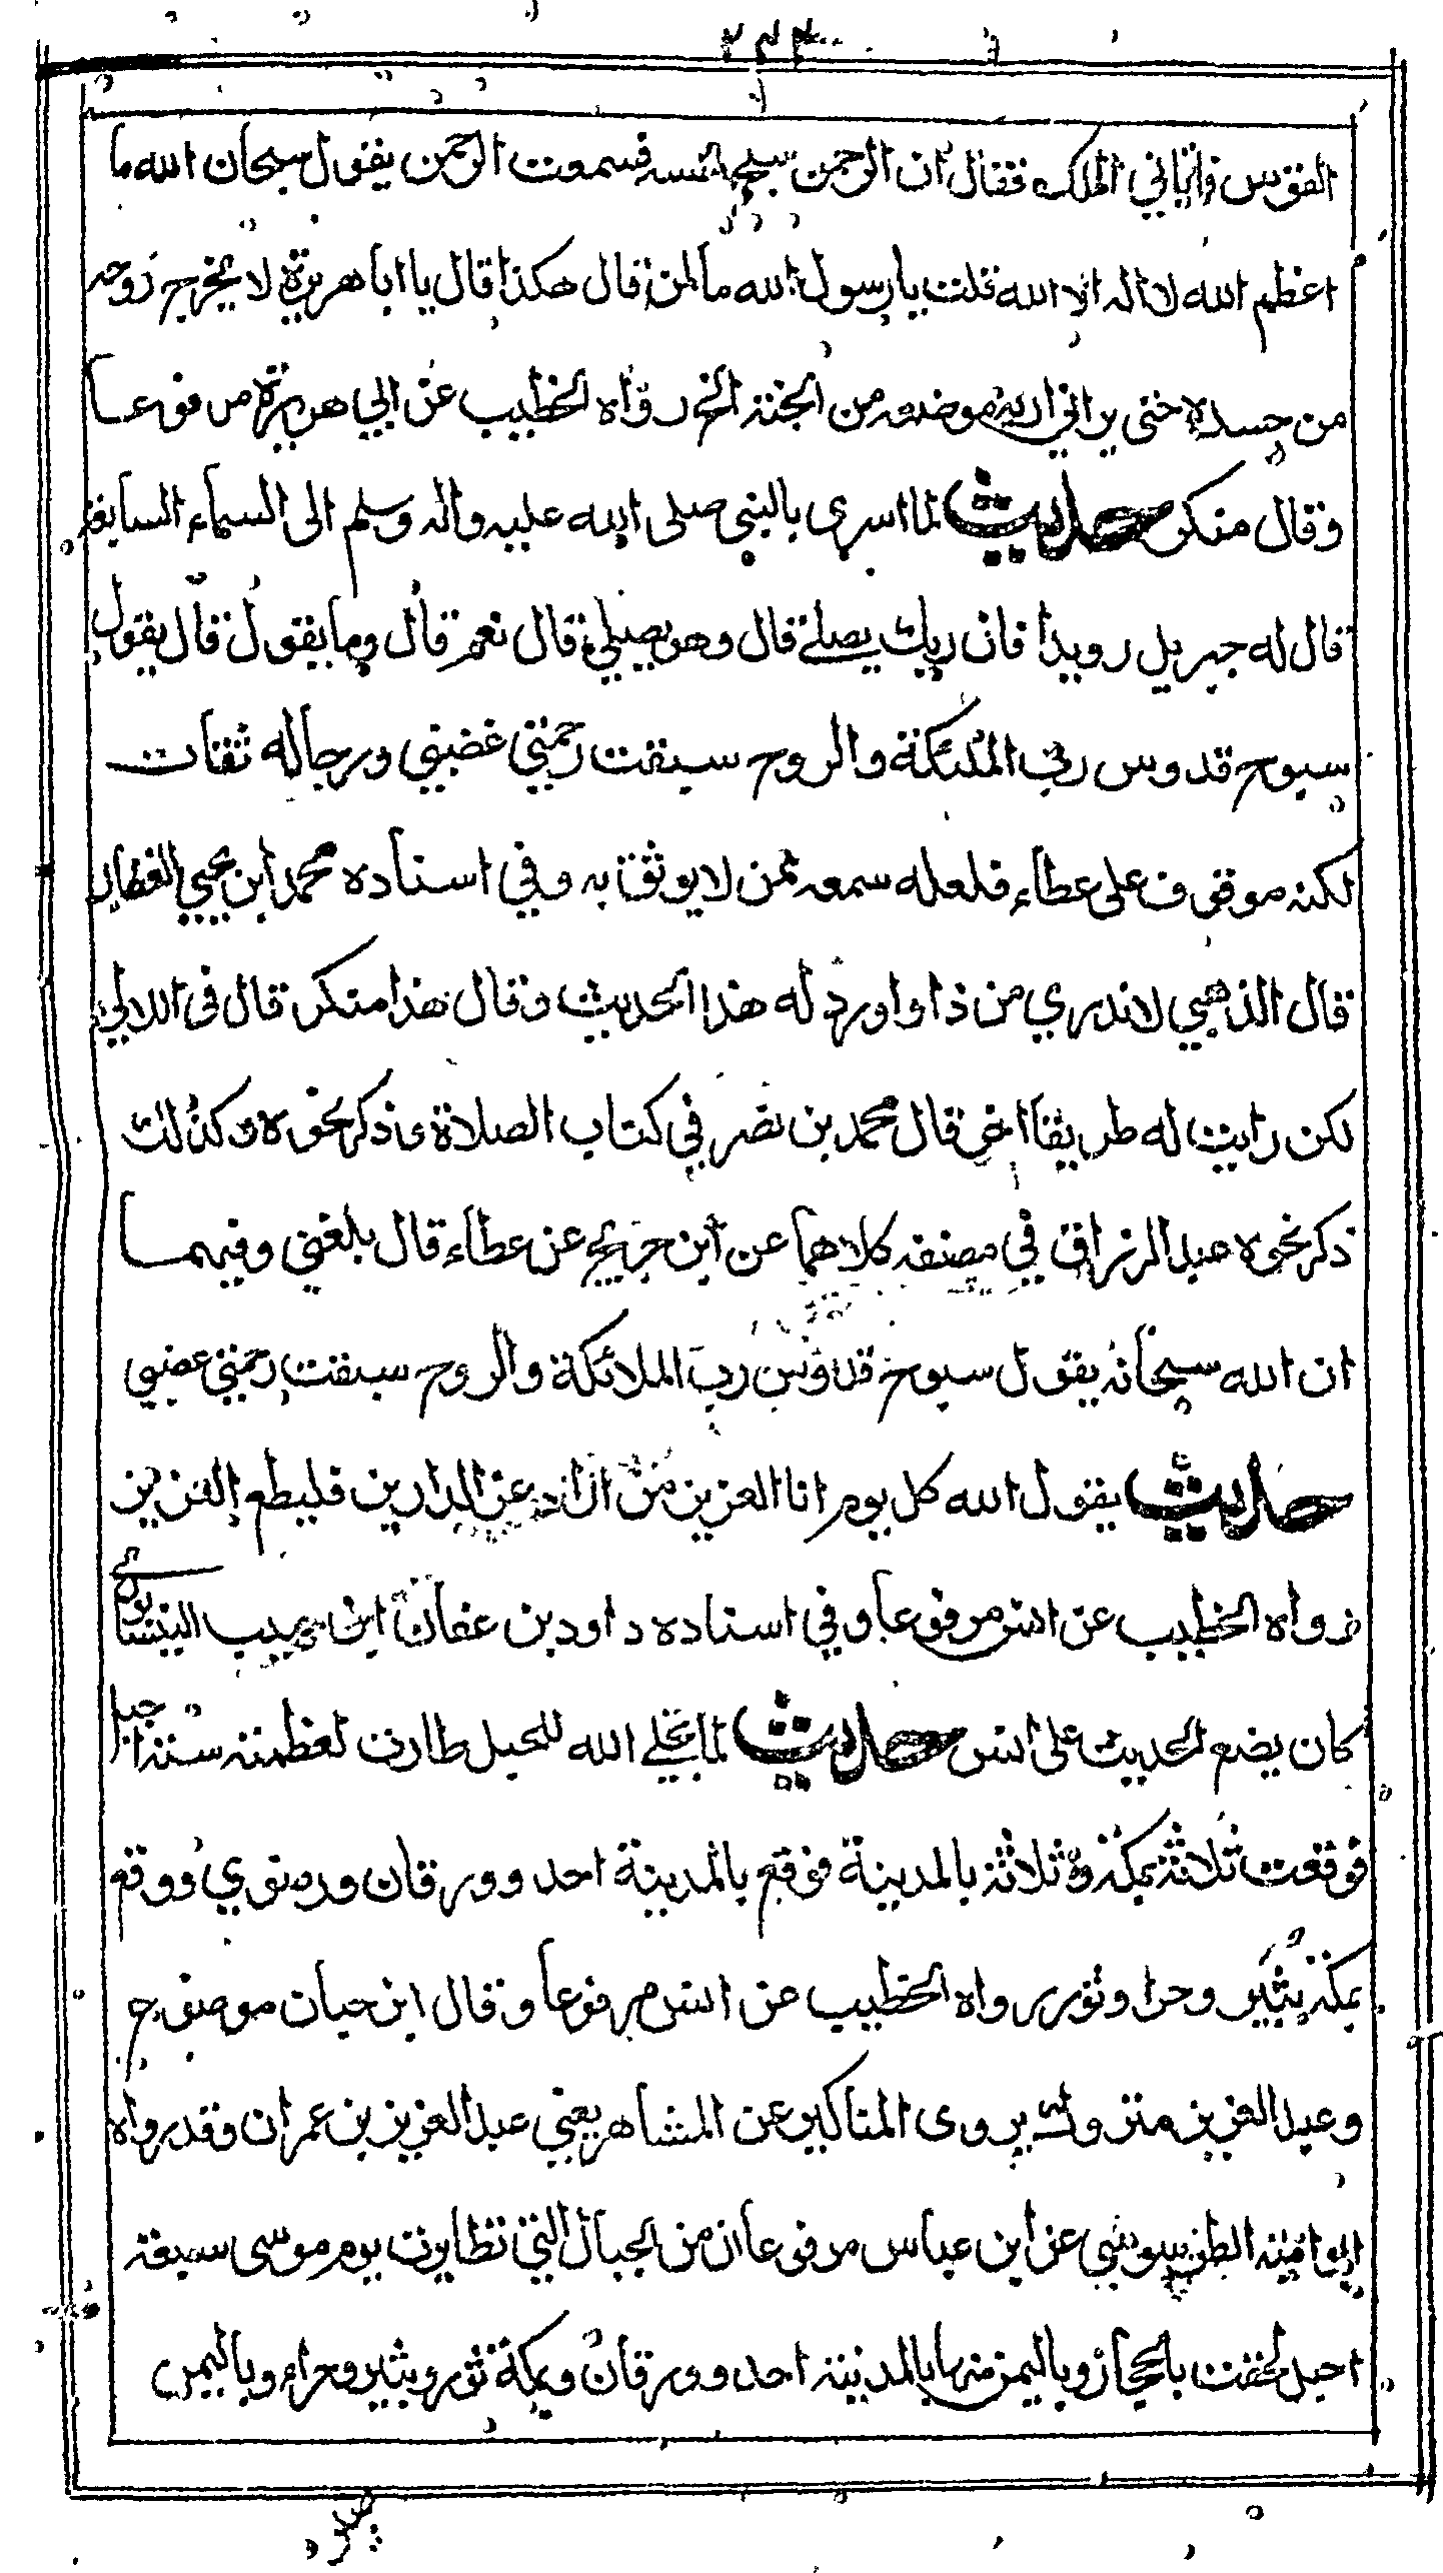 ٢٤٣
القوس فاتاني الملك فقال ان الرحمن سبح نفسه فسمعت الرحمن يقول سبحان الله ما
اعظم الله لا اله الا الله قلت يا رسول الله ما لمن قال هكذا قال يا ابا هريرة لا يخرج روحه
من جسده حتى يراني او يرى موضعه من الجنة الخ رواه الخطيب عن ابي هريرة مرفوعا
وقال منكر حديث لما اسري بالنبي صلى الله عليه واله وسلم الى السماء السابعة
قال له جبريل رويدا فان ربك يصلي قال وهو يصلي قال نعم قال وما يقول قال يقول
سبوح قدوس رب الملئكة والروح سبقت رحمتي غضبي ورجاله ثقات
لكنه موقوف على عطاء فلعله سمعه ممن لا يوثق به وفي اسناده محمد ابن يحيي العطار
قال الذهبي لا ندري من ذا واورد له هذا الحديث وقال هذا منكر قال في اللالي
لكن رايت له طريقا اخي قال محمد بن نصر في كتاب الصلاة وذكر نحوه وكذلك
ذكر نحوه عبد الرزاق في مصنفه كلاهما عن ابن جريج عن عطاء قال بلغني وفيهما
ان الله سبحانه يقول سبوح قدوس رب الملائكة والروح سبقت رحمتي غضبي
حديث يقول الله كل يوم انا العزيز من اراد عز الدارين فليطع العزيز
رواه الخطيب عن انس مرفوعا وفي اسناده داود بن عفان ابن حبيب النيسابوري
كان يضع الحديث على انس حديث لما تجلى الله للجبل طارت لعظمته ستة اجبل
فوقعت ثلاثة بمكة وثلاثة بالمدينة فوقع بالمدينة احد وورقان ورضوي ووقع
بمكة ثبير وحرا وثور رواه الخطيب عن انس مرفوعا وقال ابن حبان موضوع
وعبد العزيز متروك يروى المناكير عن المشاهر يعني عبد العزيز بن عمران وقد رواه
ابو امية الطرسوسي عن ابن عباس مرفوعا ان من الجبال التي تطايرت يوم موسى سبعة
اجبل لحقت بالحجاز وباليمن منها بالمدينة احد وورقان وبمكة ثور وثبير وحراء وباليمن